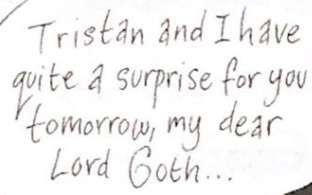 Tristan and I have
quite a surprise for you
tomorrow, my dear
Lord Goth...